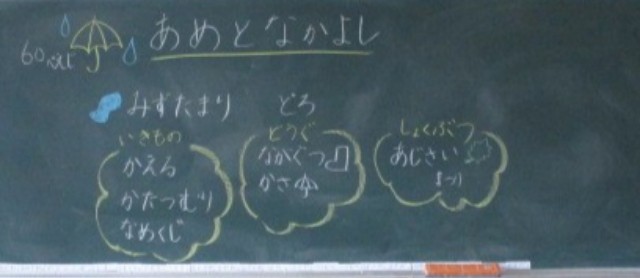 あめとなかよし
みずたまり　どろ
いきもの
かえる
かたつむり
なめくじ
どうぐ
ながぐつ
かさ
しょくぶつ
あじさい